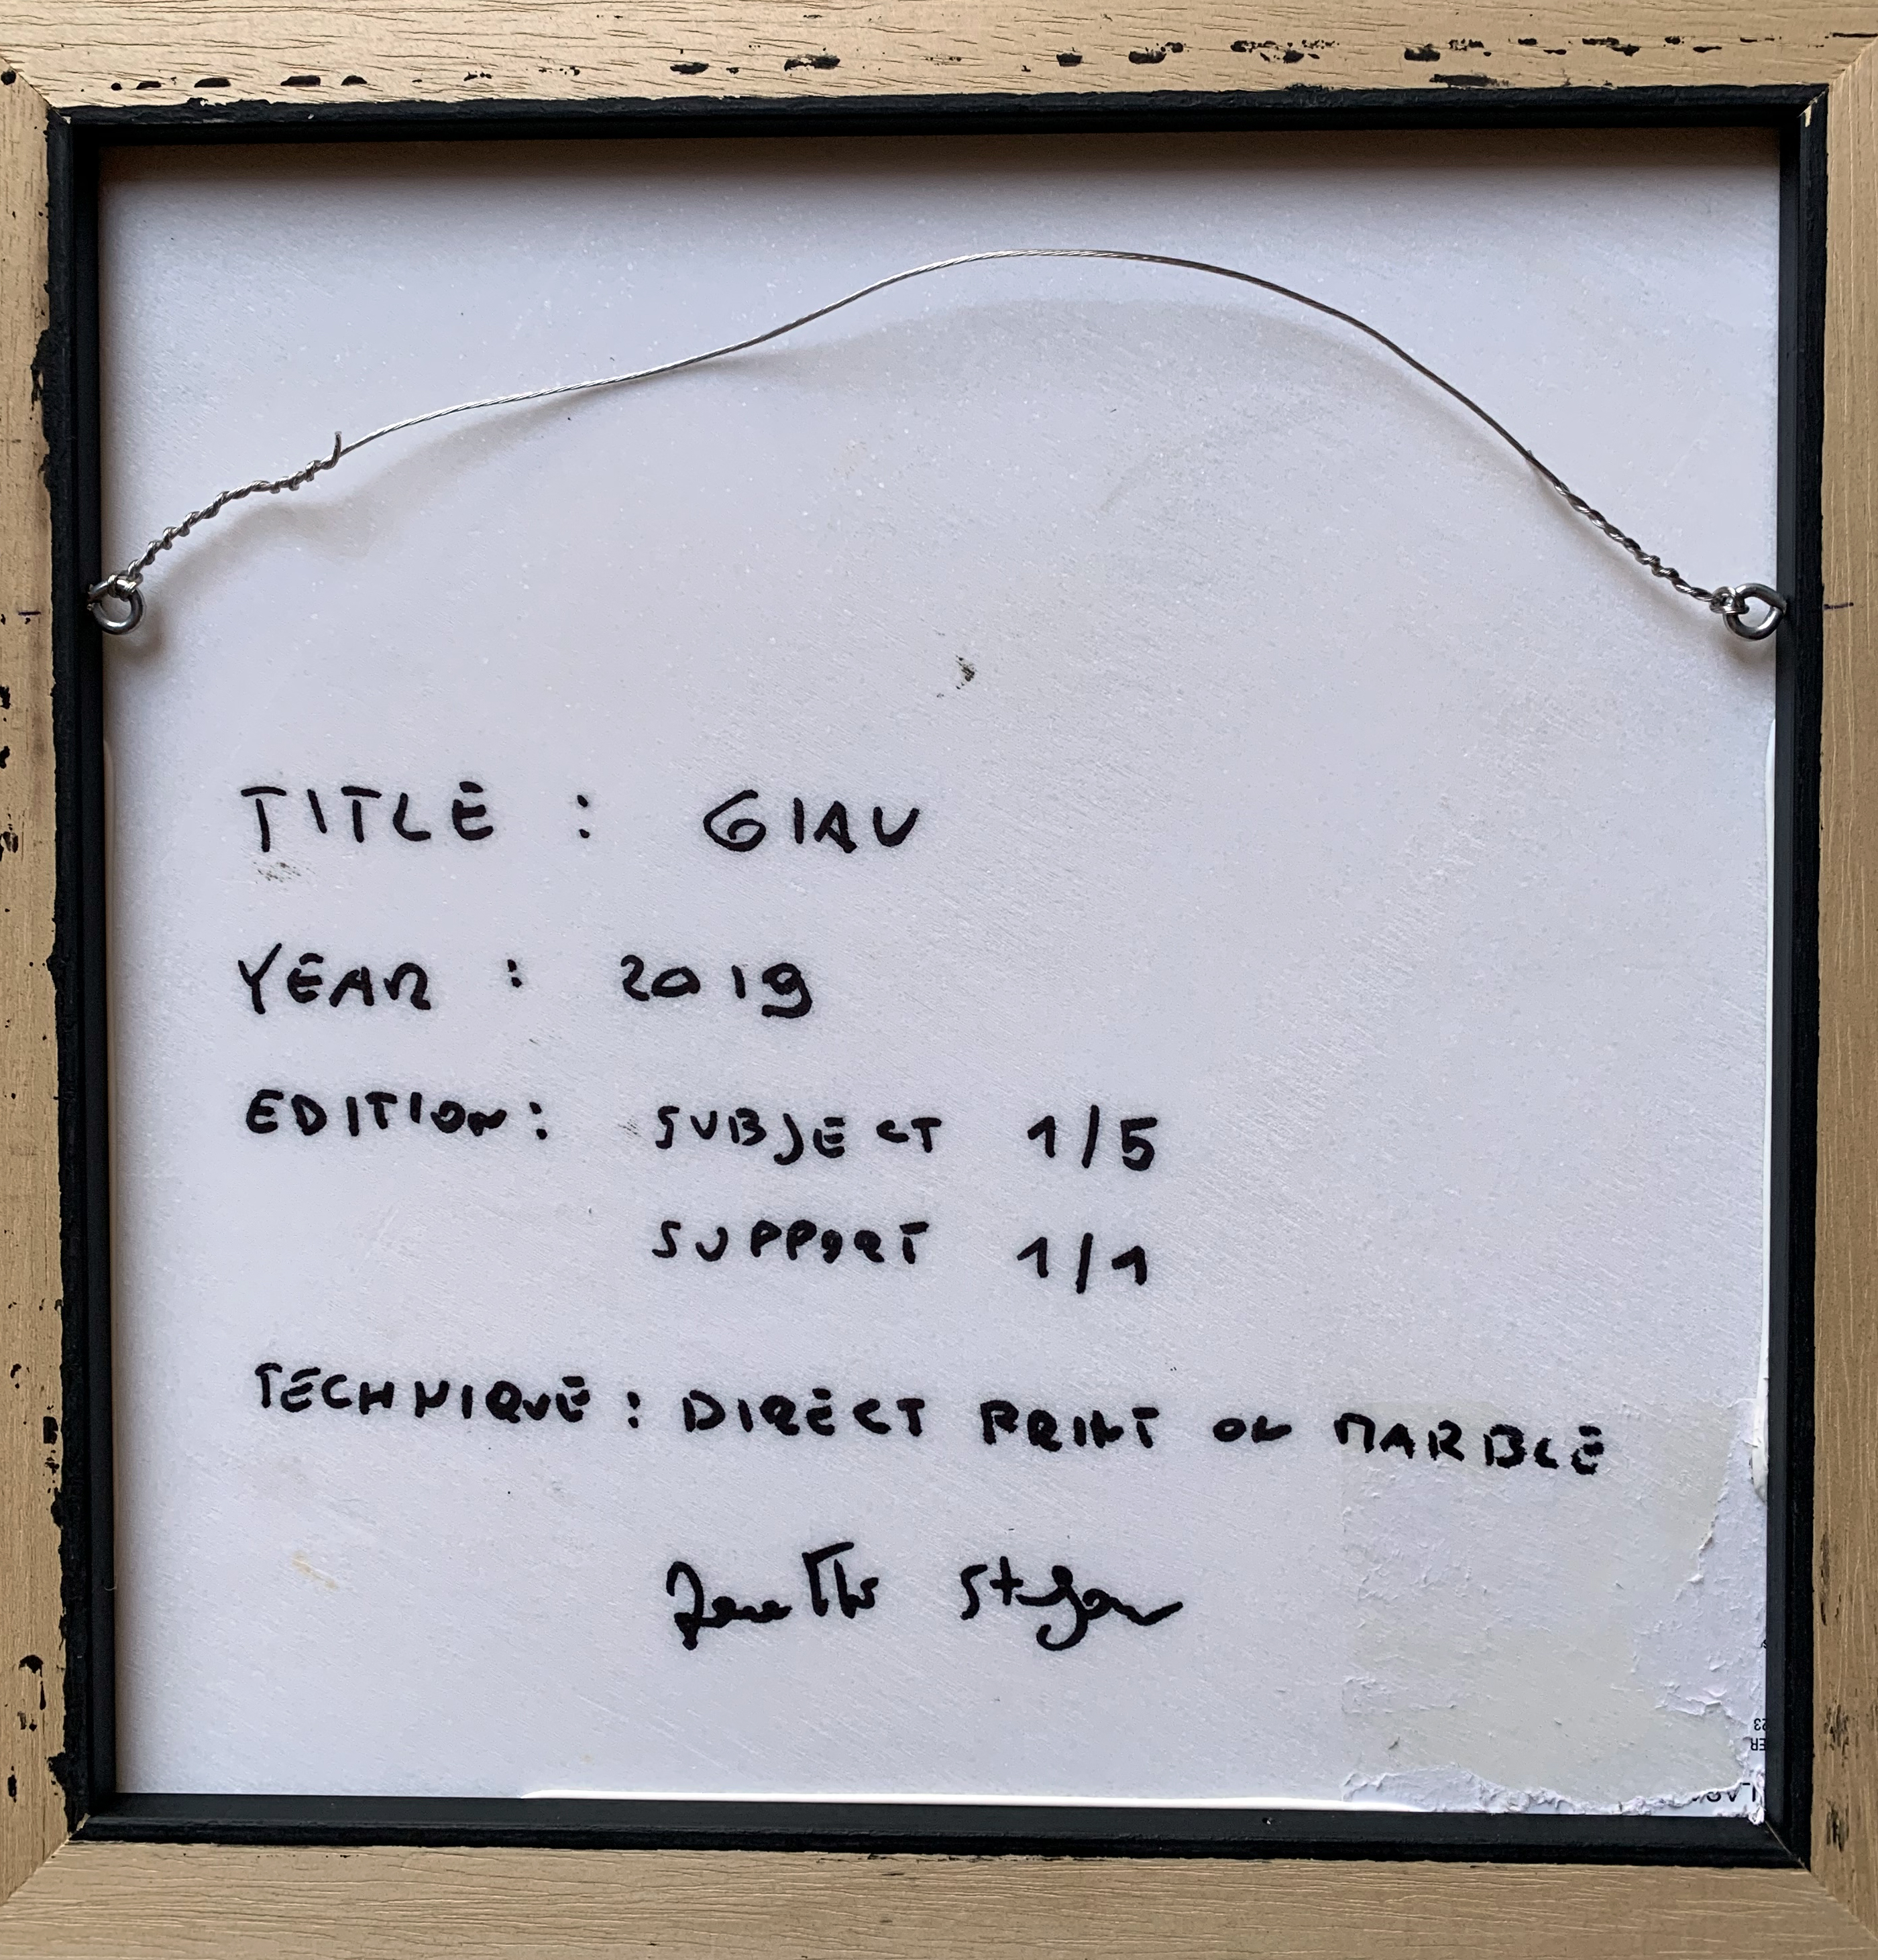 TITLE : GIAU
YEAR : 2019
EDITION: SUBJECT 1/5
SUPPORT 1/1
TECHNIQUE : DIRECT PRINT ON MARBLE